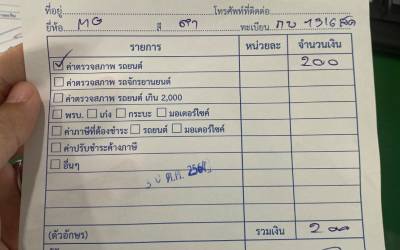 ที่อยู่ โทรศัพท์ที่ติดต่อ
ยี่ห้อ MG สี ดำ ทะเบียน กบ 7916
รายการ หน่วยละ จำนวนเงิน
ค่าตรวจสภาพ รถยนต์ 200
ค่าตรวจสภาพ รถจักรยานยนต์
ค่าตรวจสภาพ รถยนต์ เกิน 2,000
พรบ. เก๋ง กระบะ มอเตอร์ไซค์
ค่าภาษีที่ต้องชำระ รถยนต์ มอเตอร์ไซค์
ค่าปรับชำระค้างภาษี
อื่นๆ
ต.ค.
(ตัวอักษร) รวมเงิน 200